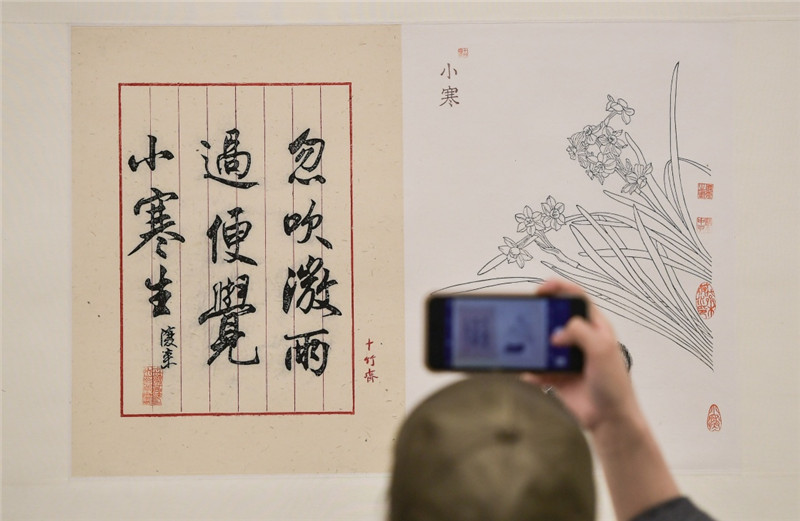 忽吹激雨
過便覺
小寒生
十竹齋
小寒